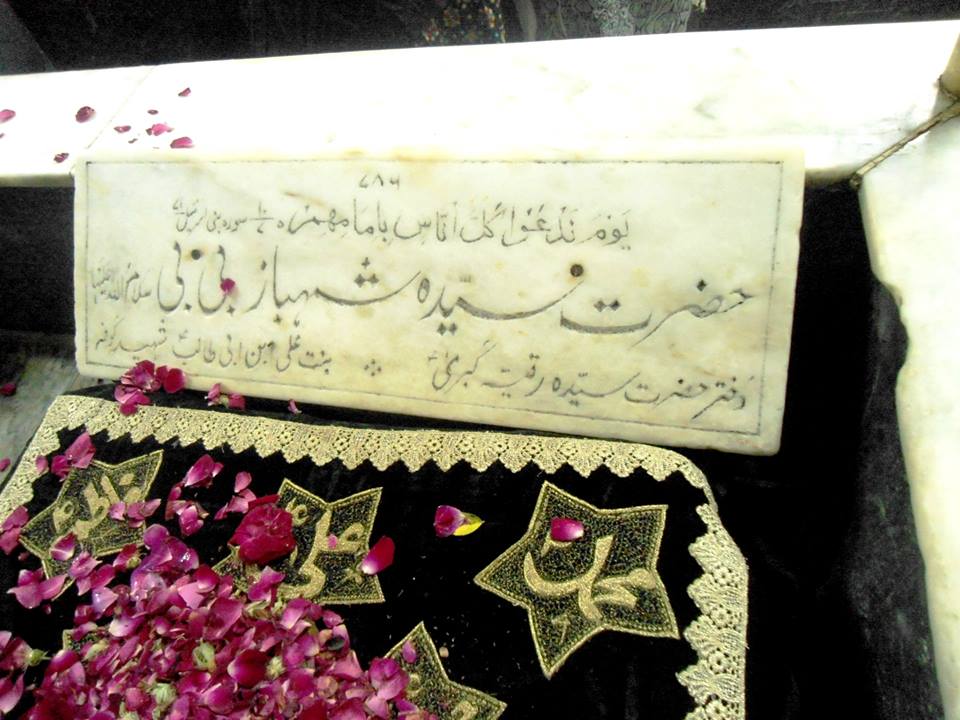 ۷۸۶
یَوْمَ نَدْعُوْا كُلَّ اُنَاسٍ بِاِمَامِهِمْ سورہ بنی اسرائیل
حضرت سیّدہ شہباز بی بی سلام اللہ علیہا
دختر حضرت سیّدہ رقیہ کبریٰؑ بنت علی ابن ابی طالبؑ شہید کوفہ
فاطمہ علی محمد